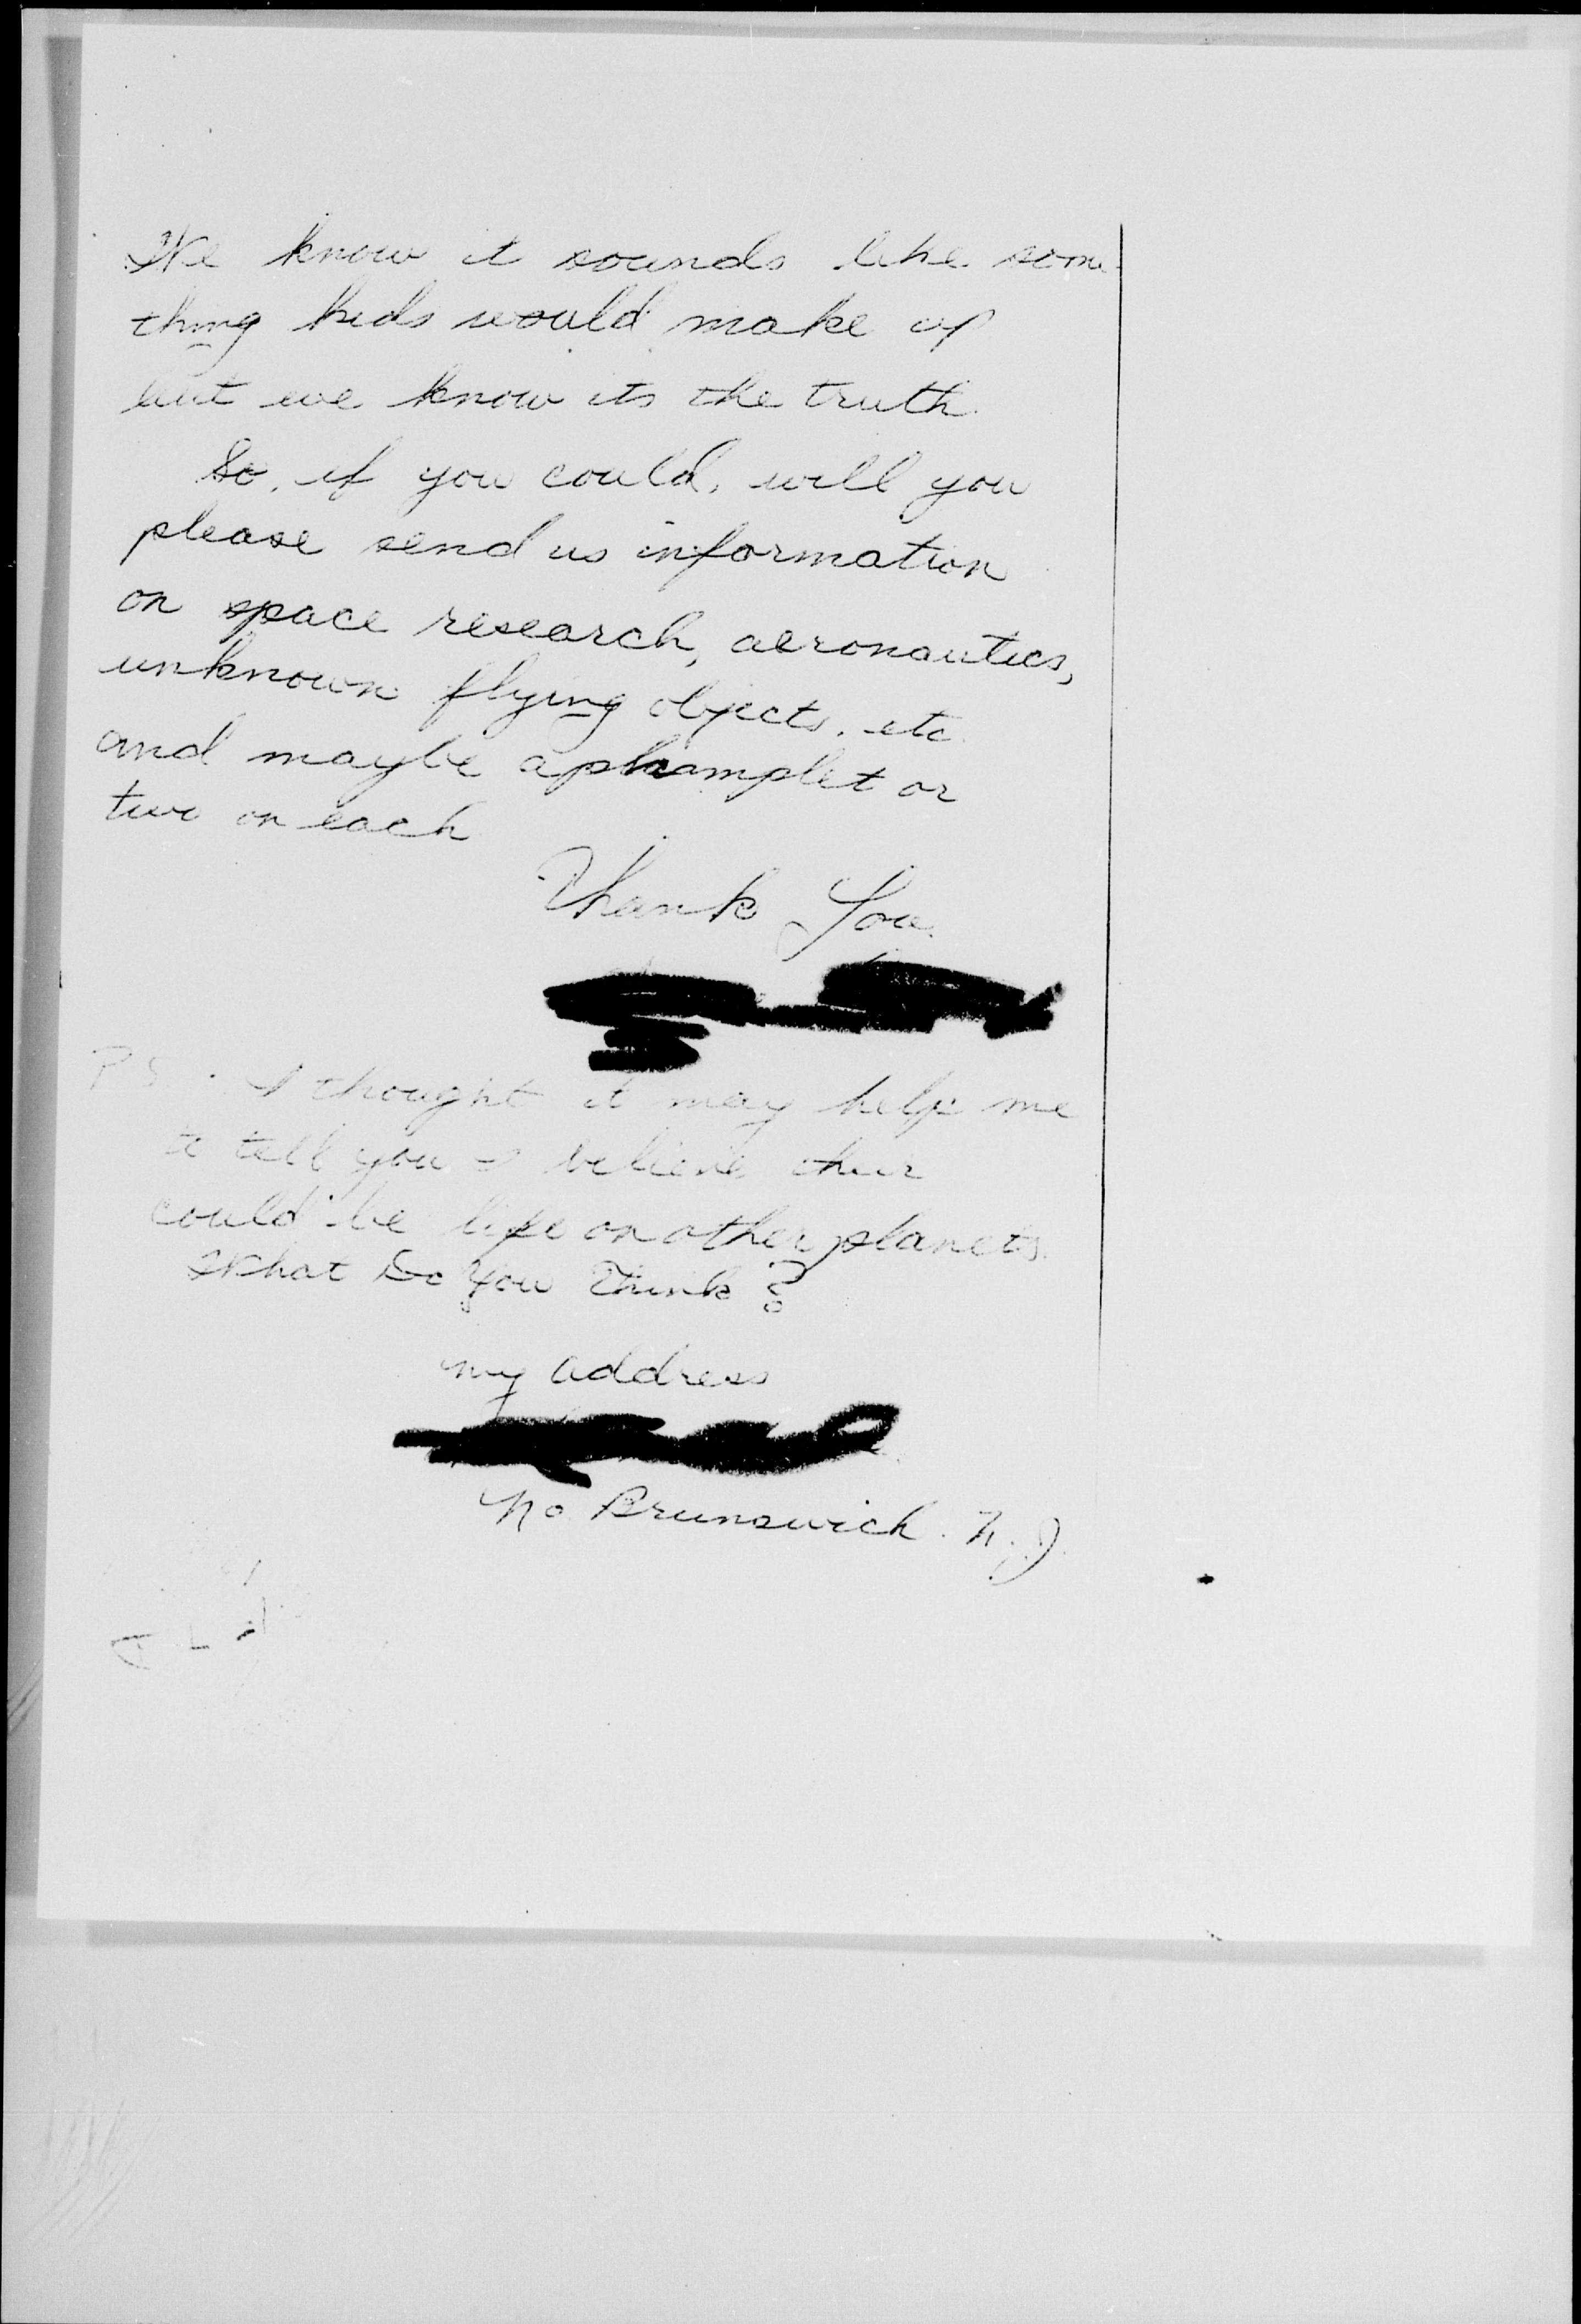 We know it sounds like some-
thing kids would make up
but we know its the truth.
So, if you could, will you
please send us information
on space research, aeronautics,
unknown flying objects, etc.
and maybe a phamplet or
two on each
Thank You.
P.S. I thought it may help me
to tell you I believe their
could be life on other planets.
What Do You Think?
my address
No. Brunswick. N.J.